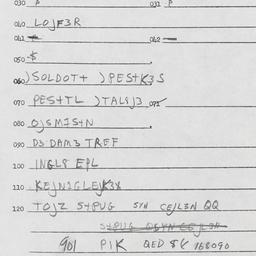 030 P 031 P
040 LOJF3R
041 042 —
050 $
060 )SOLDOT+ )PES+K3S
070 PES+TL )TALSJ3 075
080 OJSMIS+N
090 DS DAM3 TREF
100 INGLS EPL
110 KEJNSGLEJK3X
120 TOJZ S+PUG SYN CEJL3N QQ
901 PIK QED $€ 168090